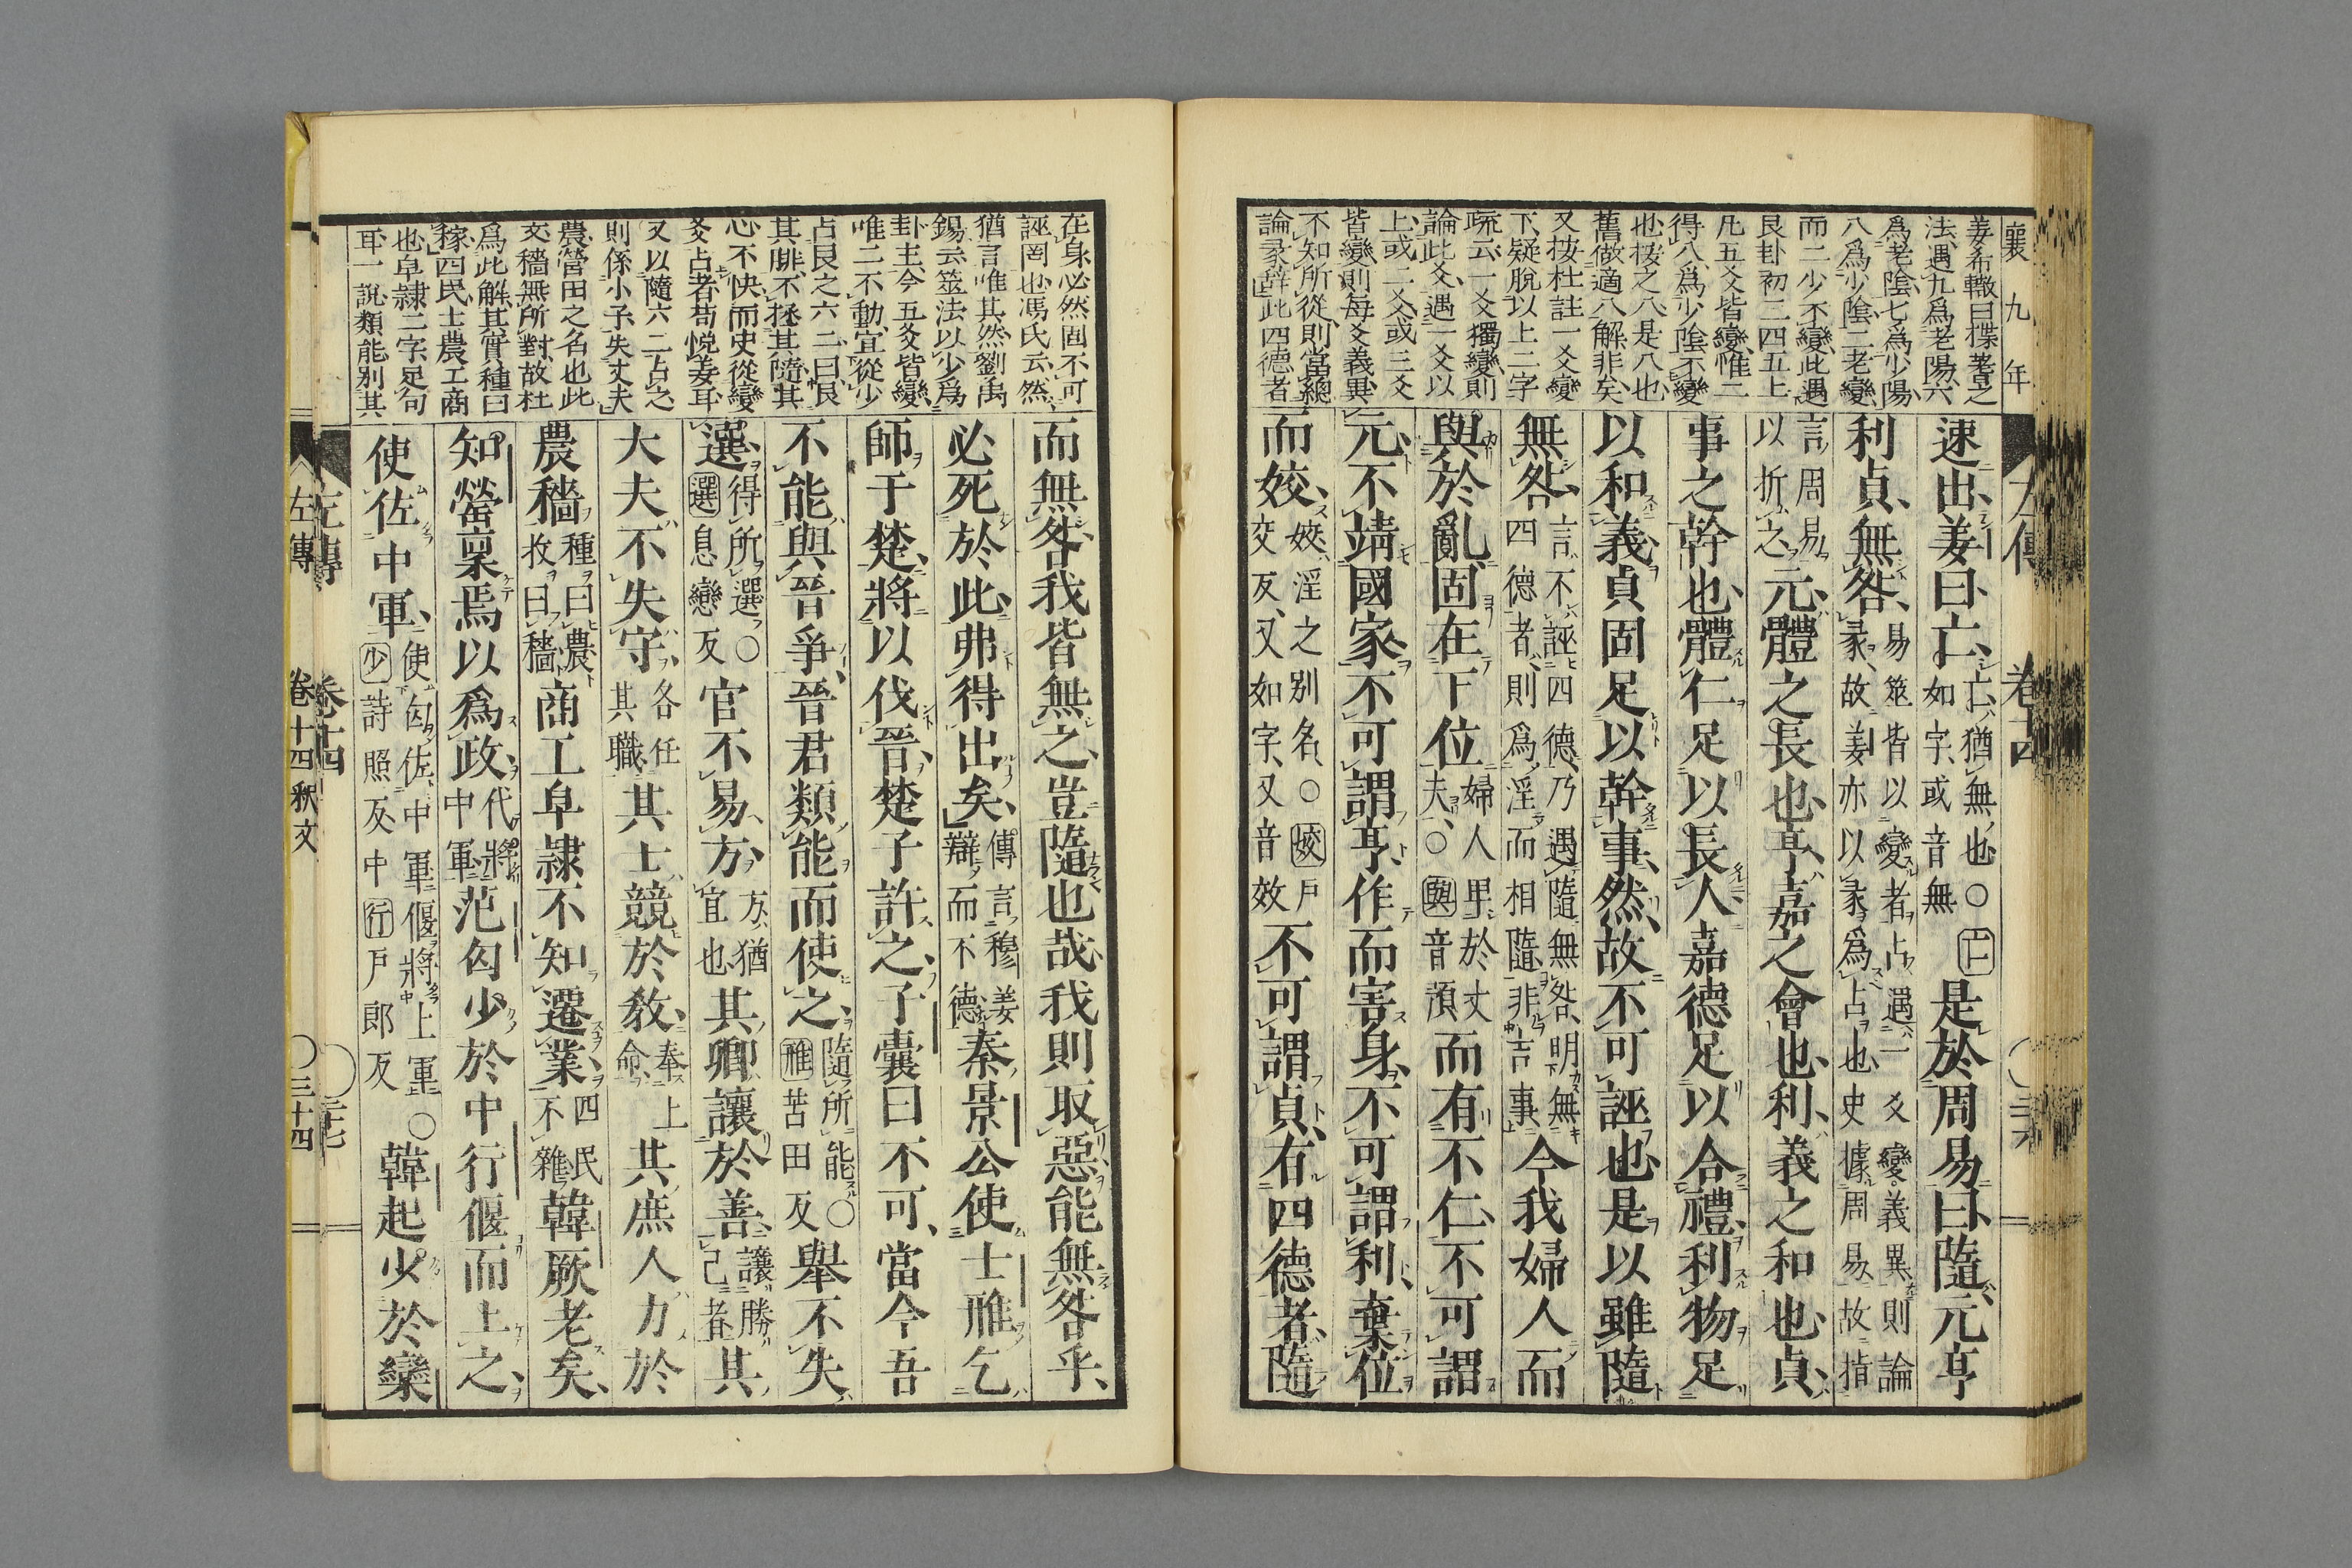 襄九年
姜希轍曰揲蓍之
法、遇九爲老陽、六
爲老陰、七爲少陽、
八爲少陰、二老變、
而二少不變、此遇
艮卦初三四五上
凡五爻皆變、惟二
得八、爲少陰不變
也、按之八、是八也、
舊做適八解非矣、
又按杜註一爻變
下、疑脫以上二字
疏云、一爻獨變、則
論此爻、遇一爻以
上、或二爻、或三爻
皆變、則每爻義異、
不知所從、則當總
論彖辭、此四德者
速出、姜曰、亡、亡、猶無也○亡
如字、或音無是於周易曰、隨、元亨
利貞、無咎、易筮皆以變者占、遇一爻變、義異、則論
彖、故姜亦以彖爲占也、史據周易、故指
言周易
以折之元、體之長也、亨、嘉之會也、利、義之和也、貞、
事之幹也、體仁足以長人、嘉德足以合禮、利物足
以和義、貞固足以幹事、然、故不可誣也、是以雖隨
無咎、言不誣四德、乃遇隨無咎、明無
四德者、則爲淫而相隨、非吉事今我婦人而
與於亂、固在下位婦人卑於丈
夫、○與音預而有不仁、不可謂
元、不靖國家、不可謂亨、作而害身、不可謂利、棄位
而姣、姣、淫之別名、○姣戶
交反、又如字、又音效不可謂貞、有四德者、隨
左傳 卷十四 ○三十六
在身必然固不可
誣罔也、馮氏云、然、
猶言唯其然、劉禹
錫云、筮法以少爲
卦主、今五爻皆變、
唯二不動、宜從少
占艮之六二、曰、艮
其腓、不拯其隨、其
心不快、而史從變
爻占者、苟悅姜耳、
又以隨六二占之
則係小子失丈夫
農、營田之名也、此
文穡無所對、故杜
爲此解、其實種曰
稼、四民、士農工商
也、皁隷二字、足句
耳、一說類能、別其
而無咎、我皆無之、豈隨也哉、我則取惡、能無咎乎、
必死於此、弗得出矣、傳言穆姜
辯而不德秦景公使士雃乞
師于楚、將以伐晉、楚子許之、子囊曰不可、當今吾
不能與晉爭、晉君類能而使之、隨所能○
雃苦田反舉不失
選、得所選○
選息戀反官不易方、方、猶
宜也其卿讓於善、讓勝
己者其
大夫不失守、各任
其職其士競於教、奉上
命其庶人力於
農穡種曰農
收曰穡商工皁隷、不知遷業、四民
不雜韓厥老矣、
知罃稟焉以爲政、代將
中軍范匄少於中行偃而上之、
使佐中軍、使匄佐中軍偃將上軍○
少詩照反中行戶郎反韓起少於欒
左傳 卷十四 ○三十七
左傳 卷十四 釈文 ○三十四